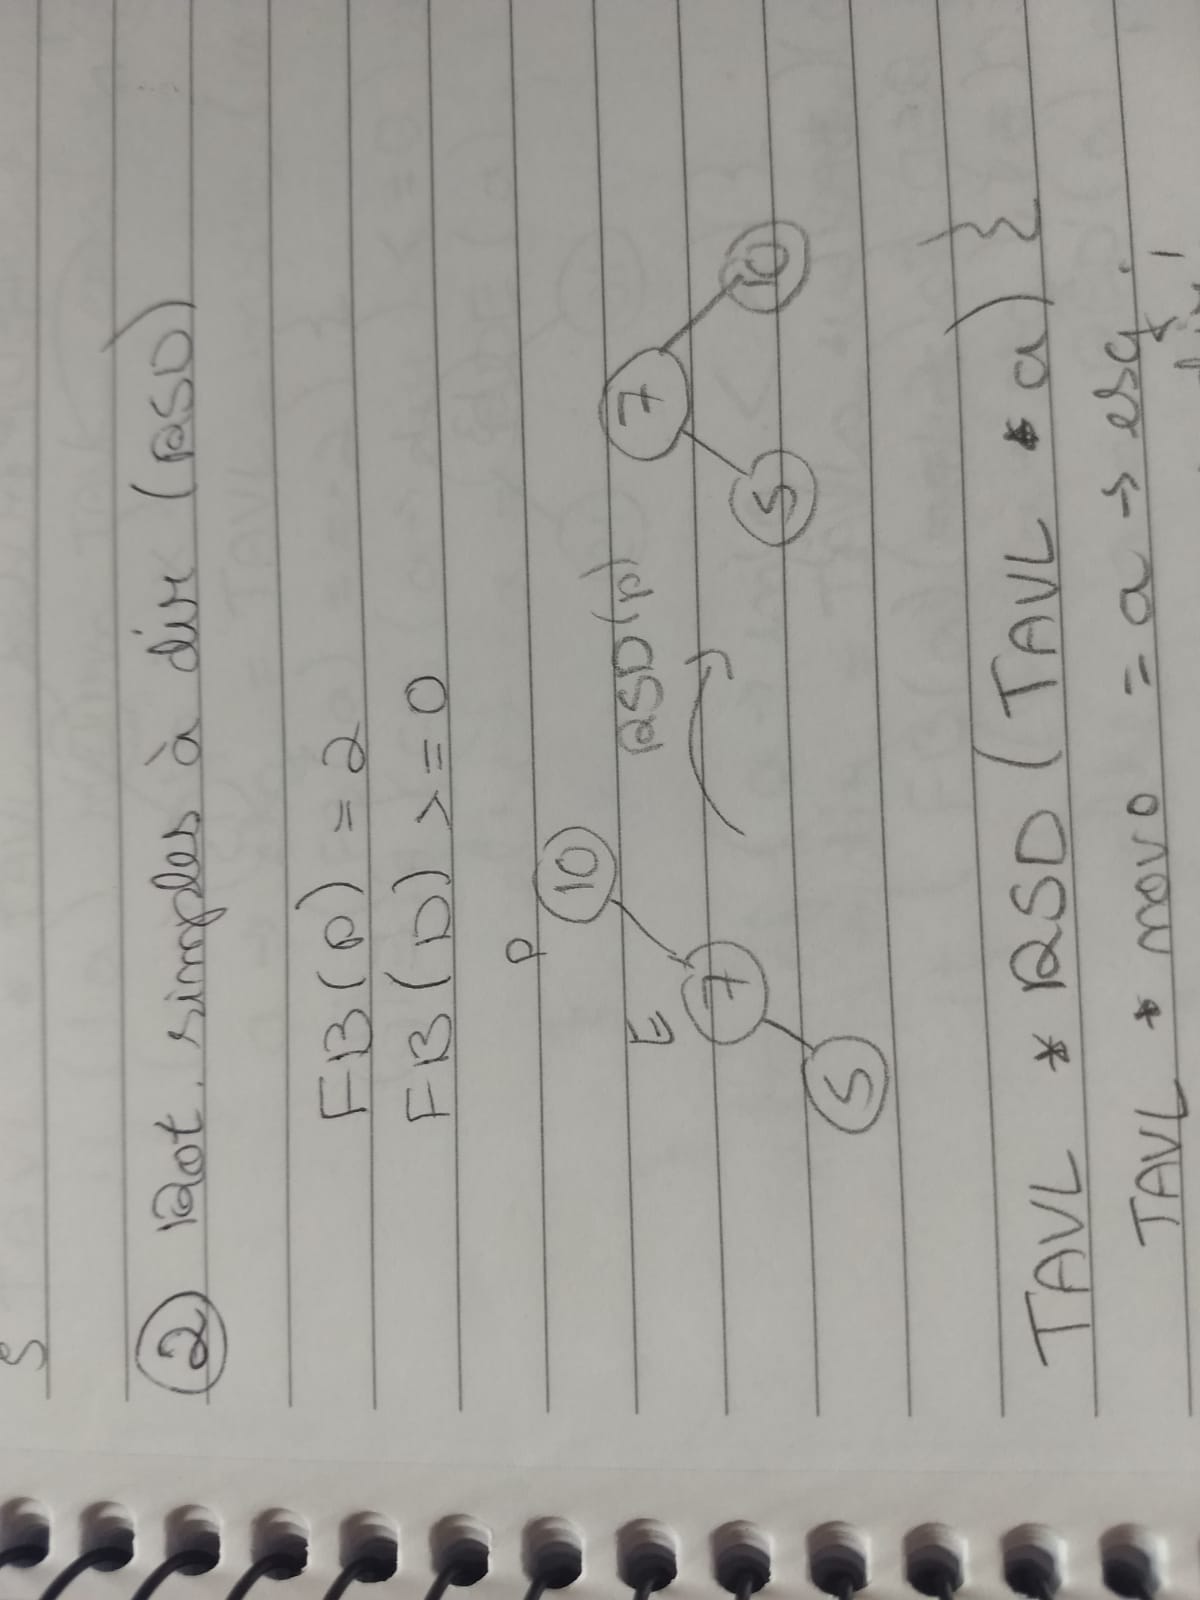 ② Rot. simples à dir (RSD)
FB(P) = 2
FB(D) >= 0
P
10
E
RSD(p)
7
7
5
10
5
TAVL * RSD (TAVL * a) {
TAVL * novo = a -> esq;